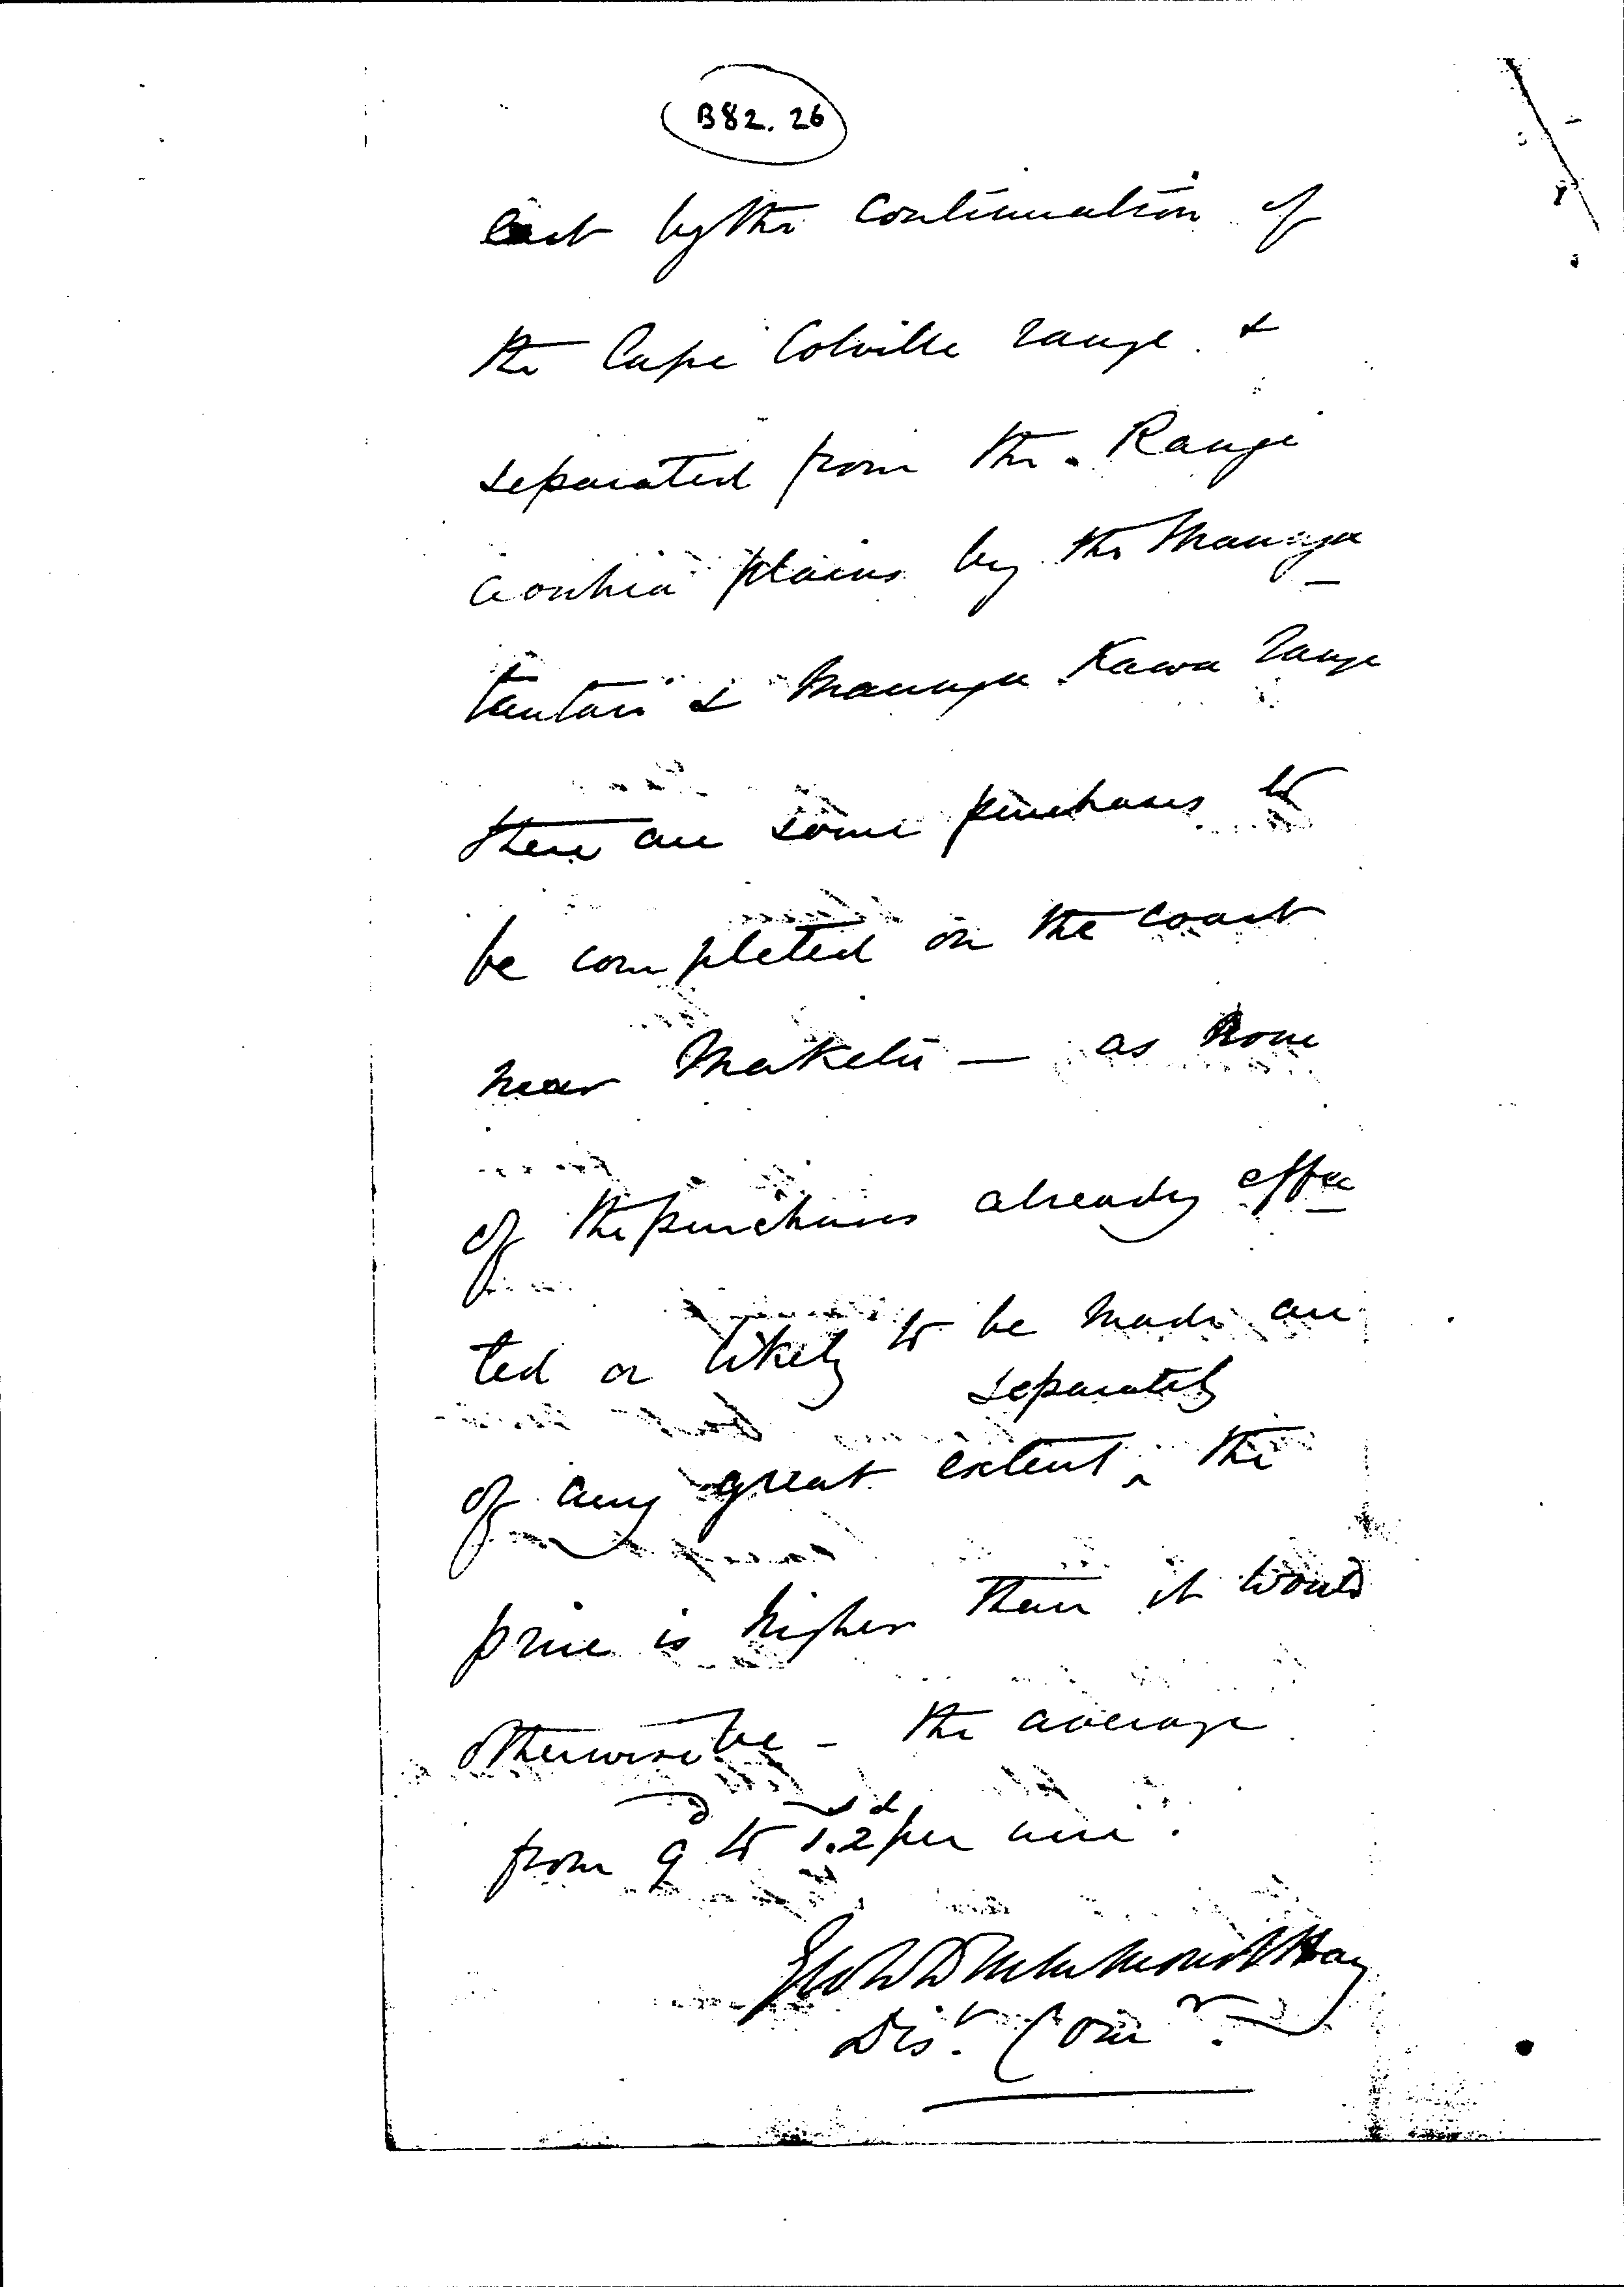 B82.26
East by the continuation of
the Cape Colville range &
separated from the Range
aowhia plains by the Maunga
tautari & Maunga Kawa range
there are some purchases to
be completed on the coast
near Maketu — as none
of the purchases already effec
ted or likely to be made are
separately
of any great extent ^ the
price is higher than it would
otherwise be – the average
from 9d to 1s.2d per acre.
Geo W Drummond Hay
Dist. Comr.